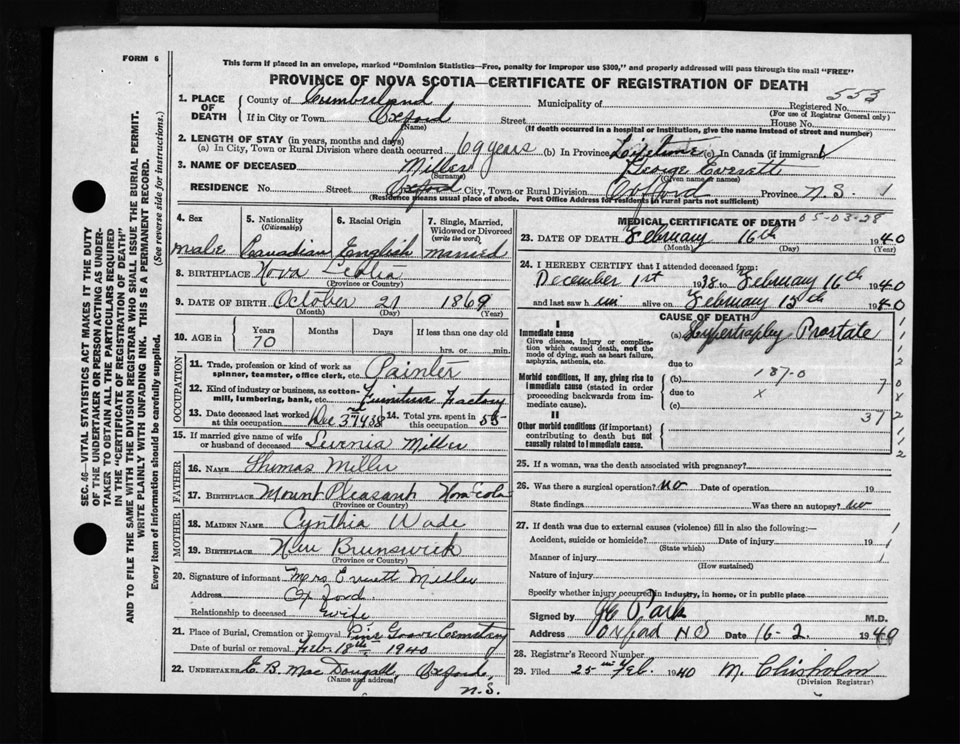 FORM 6
This form if placed in an envelope, marked "Dominion Statistics—Free, penalty for improper use $300," and properly addressed will pass through the mail "FREE"
PROVINCE OF NOVA SCOTIA—CERTIFICATE OF REGISTRATION OF DEATH
553
1. PLACE OF DEATH
County of Cumberland Municipality of Registered No.
(For use of Registrar General only)
If in City or Town Oxford Street House No.
(Name) (If death occurred in a hospital or institution, give the name instead of street and number)
2. LENGTH OF STAY (in years, months and days)
(a) In City, Town or Rural Division where death occurred 69 years (b) In Province Lifetime (c) In Canada (if immigrant)
3. NAME OF DECEASED Miller George Everett
(Surname) (Given name or names)
RESIDENCE No. Street Oxford City, Town or Rural Division Oxford Province N.S. 1
(Residence means usual place of abode. Post Office Address for residents in rural parts not sufficient)
4. Sex
male
5. Nationality
(Citizenship)
Canadian
6. Racial Origin
English
7. Single, Married, Widowed or Divorced
(write the word)
married
8. BIRTHPLACE Nova Scotia
(Province or Country)
9. DATE OF BIRTH October 21 1869
(Month) (Day) (Year)
10. AGE in Years Months Days If less than one day old
70 hrs. or min.
OCCUPATION
11. Trade, profession or kind of work as spinner, teamster, office clerk, etc. Painter
12. Kind of industry or business, as cotton-mill, lumbering, bank, etc. Furniture Factory
13. Date deceased last worked at this occupation Dec 3rd 1938 14. Total yrs. spent in this occupation 55
15. If married give name of wife or husband of deceased Miller
FATHER
16. NAME Thomas Miller
17. BIRTHPLACE Mount Pleasant Nova Scotia
(Province or Country)
MOTHER
18. MAIDEN NAME Cynthia Wade
19. BIRTHPLACE New Brunswick
(Province or Country)
20. Signature of informant Mrs Everett Miller
Address Oxford
Relationship to deceased wife
21. Place of Burial, Cremation or Removal Pine Grove Cemetery
Date of burial or removal Feb. 18th 1940
22. UNDERTAKER E. B. MacDougall, Oxford,
(Name and address) N.S.
MEDICAL CERTIFICATE OF DEATH
05-03-28
23. DATE OF DEATH February 16th 1940
(Month) (Day) (Year)
24. I HEREBY CERTIFY that I attended deceased from:
December 1st 1938 to February 16th 1940
and last saw him alive on February 15th 1940
CAUSE OF DEATH
I
Immediate cause
Give disease, injury or complication which caused death, not the mode of dying, such as heart failure, asphyxia, asthenia, etc.
(a) Hypertrophy Prostate
due to
Morbid conditions, if any, giving rise to immediate cause (stated in order proceeding backwards from immediate cause).
(b) 137.0
due to x
(c)
II
Other morbid conditions (if important) contributing to death but not causally related to immediate cause.
37
25. If a woman, was the death associated with pregnancy?
26. Was there a surgical operation? no Date of operation 19
State findings Was there an autopsy? no
27. If death was due to external causes (violence) fill in also the following:—
Accident, suicide or homicide? Date of injury 19
(State which)
Manner of injury
(How sustained)
Nature of injury
Specify whether injury occurred in industry, in home, or in public place
Signed by M.D.
Address Oxford NS Date 16-2. 1940
28. Registrar's Record Number
29. Filed 25 Feb. 1940 M. Chisholm
(Division Registrar)
SEC. 46—VITAL STATISTICS ACT MAKES IT THE DUTY
OF THE UNDERTAKER OR PERSON ACTING AS UNDER-
TAKER TO OBTAIN ALL THE PARTICULARS REQUIRED
IN THE "CERTIFICATE OF REGISTRATION OF DEATH"
AND TO FILE THE SAME WITH THE DIVISION REGISTRAR WHO SHALL ISSUE THE BURIAL PERMIT.
WRITE PLAINLY WITH UNFADING INK. THIS IS A PERMANENT RECORD.
Every item of information should be carefully supplied. (See reverse side for instructions.)